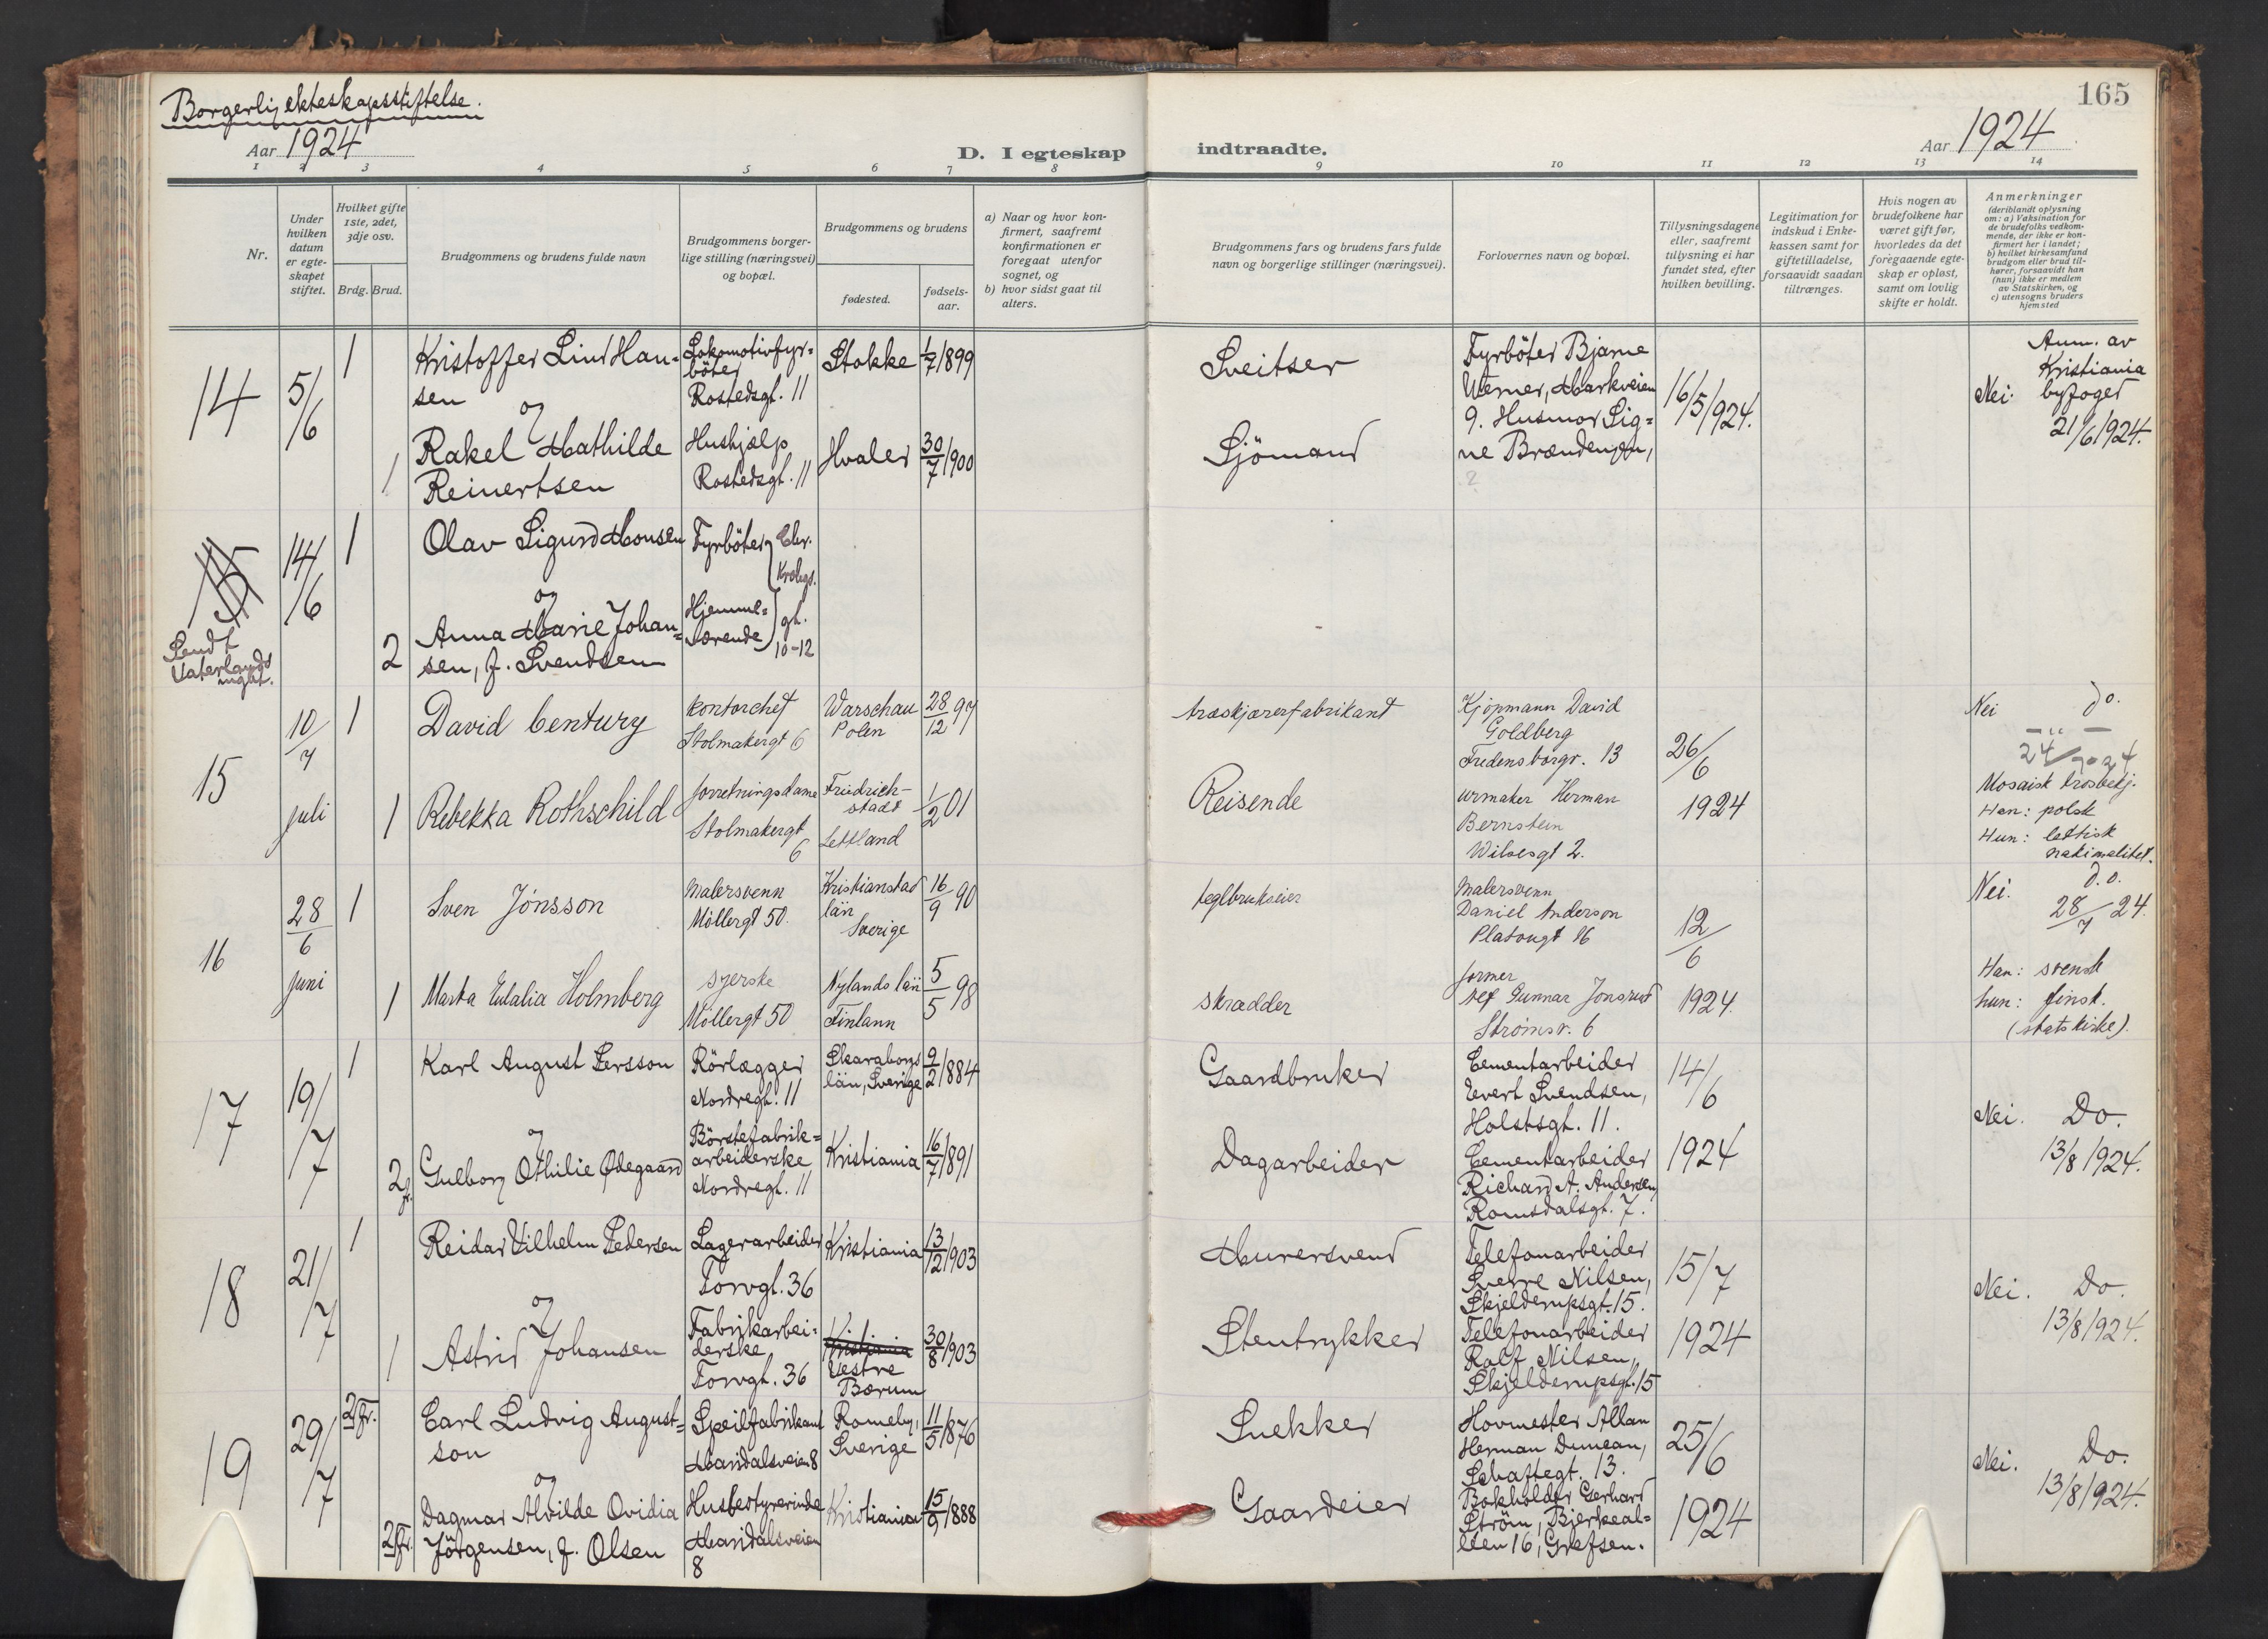 Borgerlig ekteskapsstiftelse.
165
Aar 1924
D. I egteskap indtraadte.
Aar 1924
1 2 3 4 5 6 7 8 9 10 11 12 13 14
Nr.
Under
hvilken
datum
er egte-
skapet
stiftet.
Hvilket gifte
1ste, 2det,
3dje osv.
Brdg. Brud.
Brudgommens og brudens fulde navn
Brudgommens borger-
lige stilling (næringsvei)
og bopæl.
Brudgommens og brudens
fødested.
fødsels-
aar.
a) Naar og hvor kon-
firmert, saafremt
konfirmationen er
foregaat utenfor
sognet, og
b) hvor sidst gaat til
alters.
Brudgommens fars og brudens fars fulde
navn og borgerlige stillinger (næringsvei).
Forlovernes navn og bopæl.
Tillysningsdagene
eller, saafremt
tillysning ei har
fundet sted, efter
hvilken bevilling.
Legitimation for
indskud i Enke-
kassen samt for
giftetilladelse,
forsaavidt saadan
tiltrænges.
Hvis nogen av
brudefolkene har
været gift før,
hvorledes da det
foregaaende egte-
skap er opløst,
samt om lovlig
skifte er holdt.
Anmerkninger
(deriblandt oplysning
om: a) Vaksination for
de brudefolks vedkom-
mende, der ikke er kon-
firmert her i landet;
b) hvilket kirkesamfund
brudgom eller brud til-
hører, forsaavidt han
(hun) ikke er medlem
av Statskirken, og
c) utensogns bruders
hjemsted
14
5/6
1
Kristoffer Lind Han-
sen
og
1
Rakel Mathilde
Reinertsen
Lokomotivfyr-
böter
Rostedsgt. 11
Hushjælp
Rostedsgt. 11
Stokke
1/7 1899
Hvaler
30/7 1900
Sveitser
Sjömand
Fyrböter Bjarne
Werner, Markveien
9. Husmor Sig-
ne Brændengen,
?
16/5 1924.
Nei.
Anm. av
Kristiania
byfoged
21/6 1924.
15
Sendt
Vaterlands
mght.
14/6
1
Olav Sigurd Monsen
og
2
Anna Marie Johan-
sen, f. Svendsen
Fyrböter
Hjemme-
værende
Chr.
Krohgs.
gt.
10-12
15
10/7
juli
1
David Century
1
Rebekka Rothschild
kontorchef
Stolmakergt 6
forretningsdame
Stolmakergt
6
Warschau
Polen
28/12 97
Friedrich-
stadt
Lettland
1/2 01
træskjærerfabrikant
Reisende
Kjøpmann David
Goldberg
Fredensborgv. 13
urmaker Herman
Bernstein
Wilsesgt 2.
26/6
1924
Nei
do.
24/7 24
Mosaisk trosbekj.
Han: polsk
Hun: lettisk
nationalitet.
16
28/6
juni
1
Sven Jönsson
1
Marta Eulalia Holmberg
Malersvenn
Möllergt 50.
syerske
Möllergt 50
Kristianstad
län
Sverige
16/9 90
Nylands län
Finlann
5/5 98
teglbrukseier
skrædder
Malersvenn
Daniel Anderson
Platougt 16
former
Strömsv. 6
12/6
1924.
Nei.
d.o.
28/7 24.
Han: svensk
hun: finsk.
(statskirke).
17
19/7
1
Karl August Persson
og
2 f.
Gulborg Othilie Ødegaard
Rörlægger
Nordregt. 11
Börstefabrik-
arbeiderske
Nordregt. 11
Skaraborgs
län, Sverige
9/2 1884
Kristiania
16/7 1891
Gaardbruker
Dagarbeider
Cementarbeider
Evert Svendsen,
Holstsgt. 11.
Cementarbeider
Richard A. Andersen,
Romsdalsgt. 7.
14/6
1924
Nei.
Do.
13/8 1924.
18
21/7
1
Reidar Vilhelm Pedersen
og
1
Astrid Johansen
Lagerarbeider
Torvgt. 36
Fabrikarbei-
derske
Torvgt. 36
Kristiania
13/12 1903
Kristiania
Vestre
Bærum
30/8 1903
Murersvend
Stentrykker
Telefonarbeider
Sverre Nilsen,
Skjelderupsgt. 15.
Telefonarbeider
Rolf Nilsen,
Skjelderupsgt. 15
15/7
1924
Nei.
Do.
13/8 1924.
19
29/7
2 fr.
Carl Ludvig August-
son
og
2 fr.
Dagmar Alvilde Ovidia
Jörgensen, f. Olsen
Speilfabrikant
Maridalsveien 8
Husbestyrerinde
Maridalsveien
8
Romeby,
Sverige
11/5 1876
Kristiania
15/9 1888
Snekker
Gaardeier
Hovmester Allan
Herman Duncan,
Schaftegt. 13.
Bokholder Gerhard
Ström, Bjerkeal-
leen 16, Grefsen.
25/6
1924
Nei.
Do.
13/8 1924.